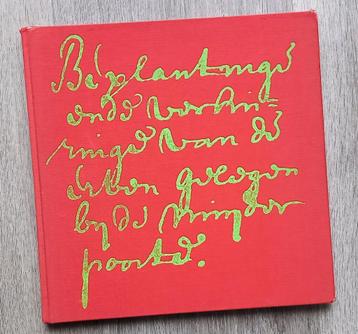 Beplantinge
ende verhu-
ringe van de
erven gelegen
by de Muyder
poorte.